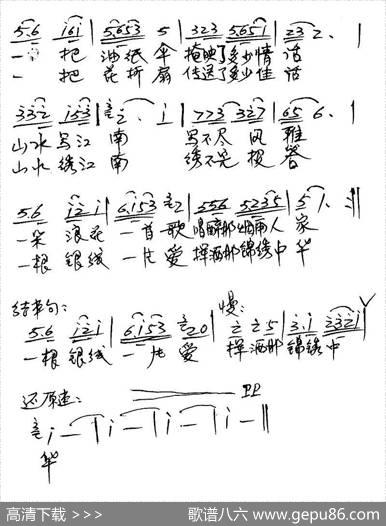 5.6 161 | 5653 5 | 323 5651 | 232. |
一 把 油纸 伞 掩映了多少情 话
一 把 花折 扇 传送了多少佳 话
332 153 | 2. i | 773 327 | 65 6. |
山水写江 南 写不尽 风 雅
山水绣江 南 绣不完 模 答
5.6 i2i | 6i53 2 | 556 5235 | 5 i. :||
一朵 浪花 一首歌 唱醉那 人 家
一根 银线 一片爱 挥洒那锦绣中 华
结束句: 慢:
5.6 i2i | 6i53 20 | 2 2 5 | 3.i 232i |
一根 银线 一片 爱 挥 洒那 锦绣 中
还原速: PP
i — | i — | i — | i — | i — ||
华
高清下载 >>> 歌谱八六 www.gepu86.com